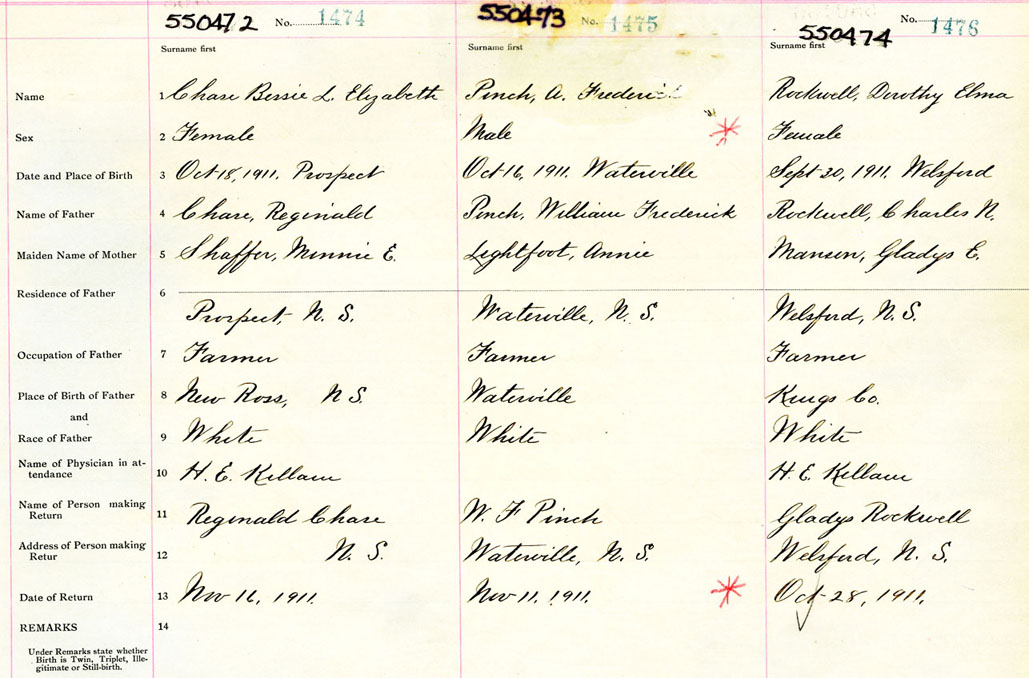 550472 No. 1474 550473 No. 1475 550474 No. 1476
Surname first Surname first Surname first
Name 1 Chase Bessie L. Elizabeth Pinch, A. Frederick Rockwell, Dorothy Elma
Sex 2 Female Male Female
Date and Place of Birth 3 Oct 18, 1911. Prospect Oct 16, 1911. Waterville Sept 30, 1911. Welsford
Name of Father 4 Chase, Reginald Pinch, William Frederick Rockwell, Charles N.
Maiden Name of Mother 5 Shaffer, Minnie E. Lightfoot, Annie Manson, Gladys E.
Residence of Father 6
Prospect, N. S. Waterville, N. S. Welsford, N. S.
Occupation of Father 7 Farmer Farmer Farmer
Place of Birth of Father 8 New Ross, N S. Waterville Kings Co.
and
Race of Father 9 White White White
Name of Physician in at-
tendance 10 H. E. Killam H. E. Killam
Name of Person making
Return 11 Reginald Chase W. F Pinch Gladys Rockwell
Address of Person making
Retur 12 N. S. Waterville, N. S. Welsford, N. S.
Date of Return 13 Nov 16, 1911. Nov 11, 1911. Oct 28, 1911.
REMARKS 14
Under Remarks state whether
Birth is Twin, Triplet, Ille-
gitimate or Still-birth.